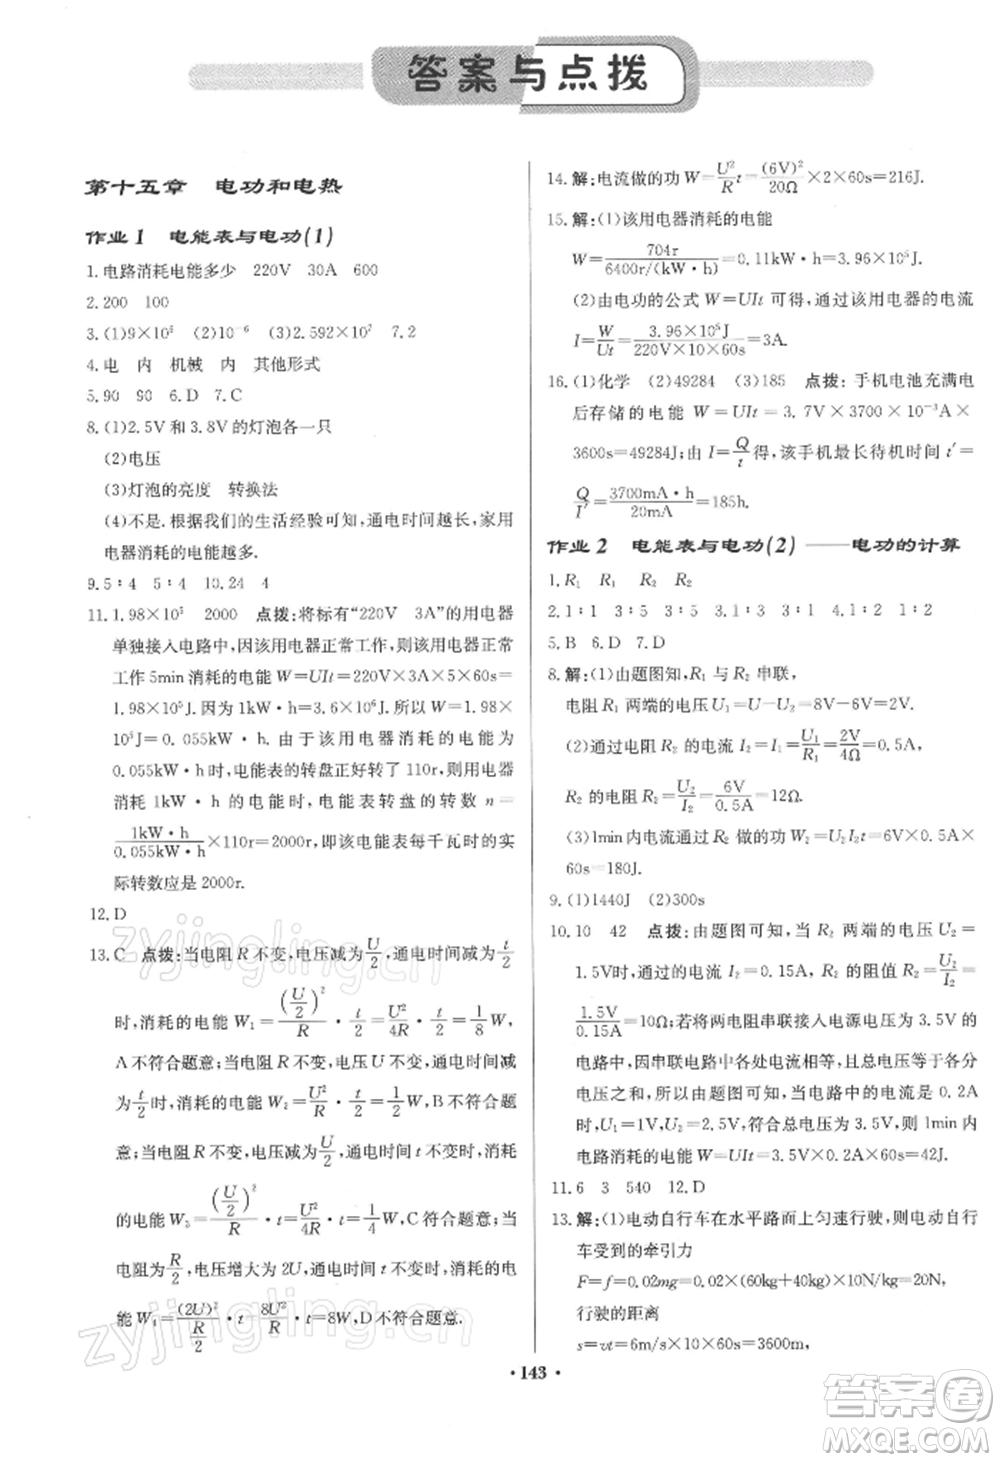 答案与点拨
第十五章 电功和电热
作业1 电能表与电功(1)
1.电路消耗电能多少 220V 30A 600
2.200 100
3.(1)9×10⁵ (2)10⁻⁶ (3)2.592×10⁷ 7.2
4.电 内 机械 内 其他形式
5.90 90 6.D 7.C
8.(1)2.5V和3.8V的灯泡各一只
(2)电压
(3)灯泡的亮度 转换法
(4)不是.根据我们的生活经验可知,通电时间越长,家用
电器消耗的电能越多.
9.5:4 5:4 10.24 4
11.1.98×10⁵ 2000 点拨:将标有“220V 3A”的用电器
单独接入电路中,因该用电器正常工作,则该用电器正常
工作5min消耗的电能W=UIt=220V×3A×5×60s=
1.98×10⁵J. 因为1kW·h=3.6×10⁶J,所以W=1.98×
10⁵J=0.055kW·h. 由于该用电器消耗的电能为
0.055kW·h时,电能表的转盘正好转了110r,则用电器
消耗1kW·h的电能时,电能表转盘的转数n=
1kW·h/0.055kW·h×110r=2000r,即该电能表每千瓦时的实
际转数应是2000r.
12.D
13.C 点拨:当电阻R不变,电压减为U/2,通电时间减为t/2
时,消耗的电能W₁=(U/2)²/R·t/2=U²/4R·t/2=1/8W,
A不符合题意;当电阻R不变,电压U不变,通电时间减
为t/2时,消耗的电能W₂=U²/R·t/2=1/2W,B不符合题
意;当电阻R不变,电压减为U/2,通电时间t不变时,消耗
的电能W₃=(U/2)²/R·t=U²/4R·t=1/4W,C符合题意;当
电阻为R/2,电压增大为2U,通电时间t不变时,消耗的电
能W₄=(2U)²/(R/2)·t=8U²/R·t=8W,D不符合题意.
14.解:电流做的功W=U²/R t=(6V)²/20Ω×2×60s=216J.
15.解:(1)该用电器消耗的电能
W=704r/6400r/(kW·h)=0.11kW·h=3.96×10⁵J.
(2)由电功的公式W=UIt可得,通过该用电器的电流
I=W/Ut=3.96×10⁵J/220V×10×60s=3A.
16.(1)化学 (2)49284 (3)185 点拨:手机电池充满电
后存储的电能W=UIt=3.7V×3700×10⁻³A×
3600s=49284J;由I=Q/t得,该手机最长待机时间t′=
Q/I′=3700mA·h/20mA=185h.
作业2 电能表与电功(2)——电功的计算
1.R₁ R₁ R₂ R₂
2.1:1 3:5 3:5 3.1:3 3:1 4.1:2 1:2
5.B 6.D 7.D
8.解:(1)由题图知,R₁与R₂串联,
电阻R₁两端的电压U₁=U-U₂=8V-6V=2V.
(2)通过电阻R₂的电流I₂=I₁=U₁/R₁=2V/4Ω=0.5A,
R₂的电阻R₂=U₂/I₂=6V/0.5A=12Ω.
(3)1min内电流通过R₂做的功W₂=U₂I₂t=6V×0.5A×
60s=180J.
9.(1)1440J (2)300s
10.10 42 点拨:由题图可知,当R₂两端的电压U₂=
1.5V时,通过的电流I₂=0.15A,R₂的阻值R₂=U₂/I₂=
1.5V/0.15A=10Ω;若将两电阻串联接入电源电压为3.5V的
电路中,因串联电路中各处电流相等,且总电压等于各分
电压之和,所以由题图可知,当电路中的电流是0.2A
时,U₁=1V、U₂=2.5V,符合总电压为3.5V,则1min内
电路消耗的电能W=UIt=3.5V×0.2A×60s=42J.
11.6 3 540 12.D
13.解:(1)电动自行车在水平路面上匀速行驶,则电动自行
车受到的牵引力
F=f=0.02mg=0.02×(60kg+40kg)×10N/kg=20N,
行驶的距离
s=vt=6m/s×10×60s=3600m.
·143·
zyjingling.cn
zyjingling.cn
答案圈
MXQE.COM